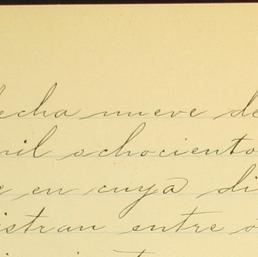 fecha nueve de
mil schociento
e en cuya di
istran entre o